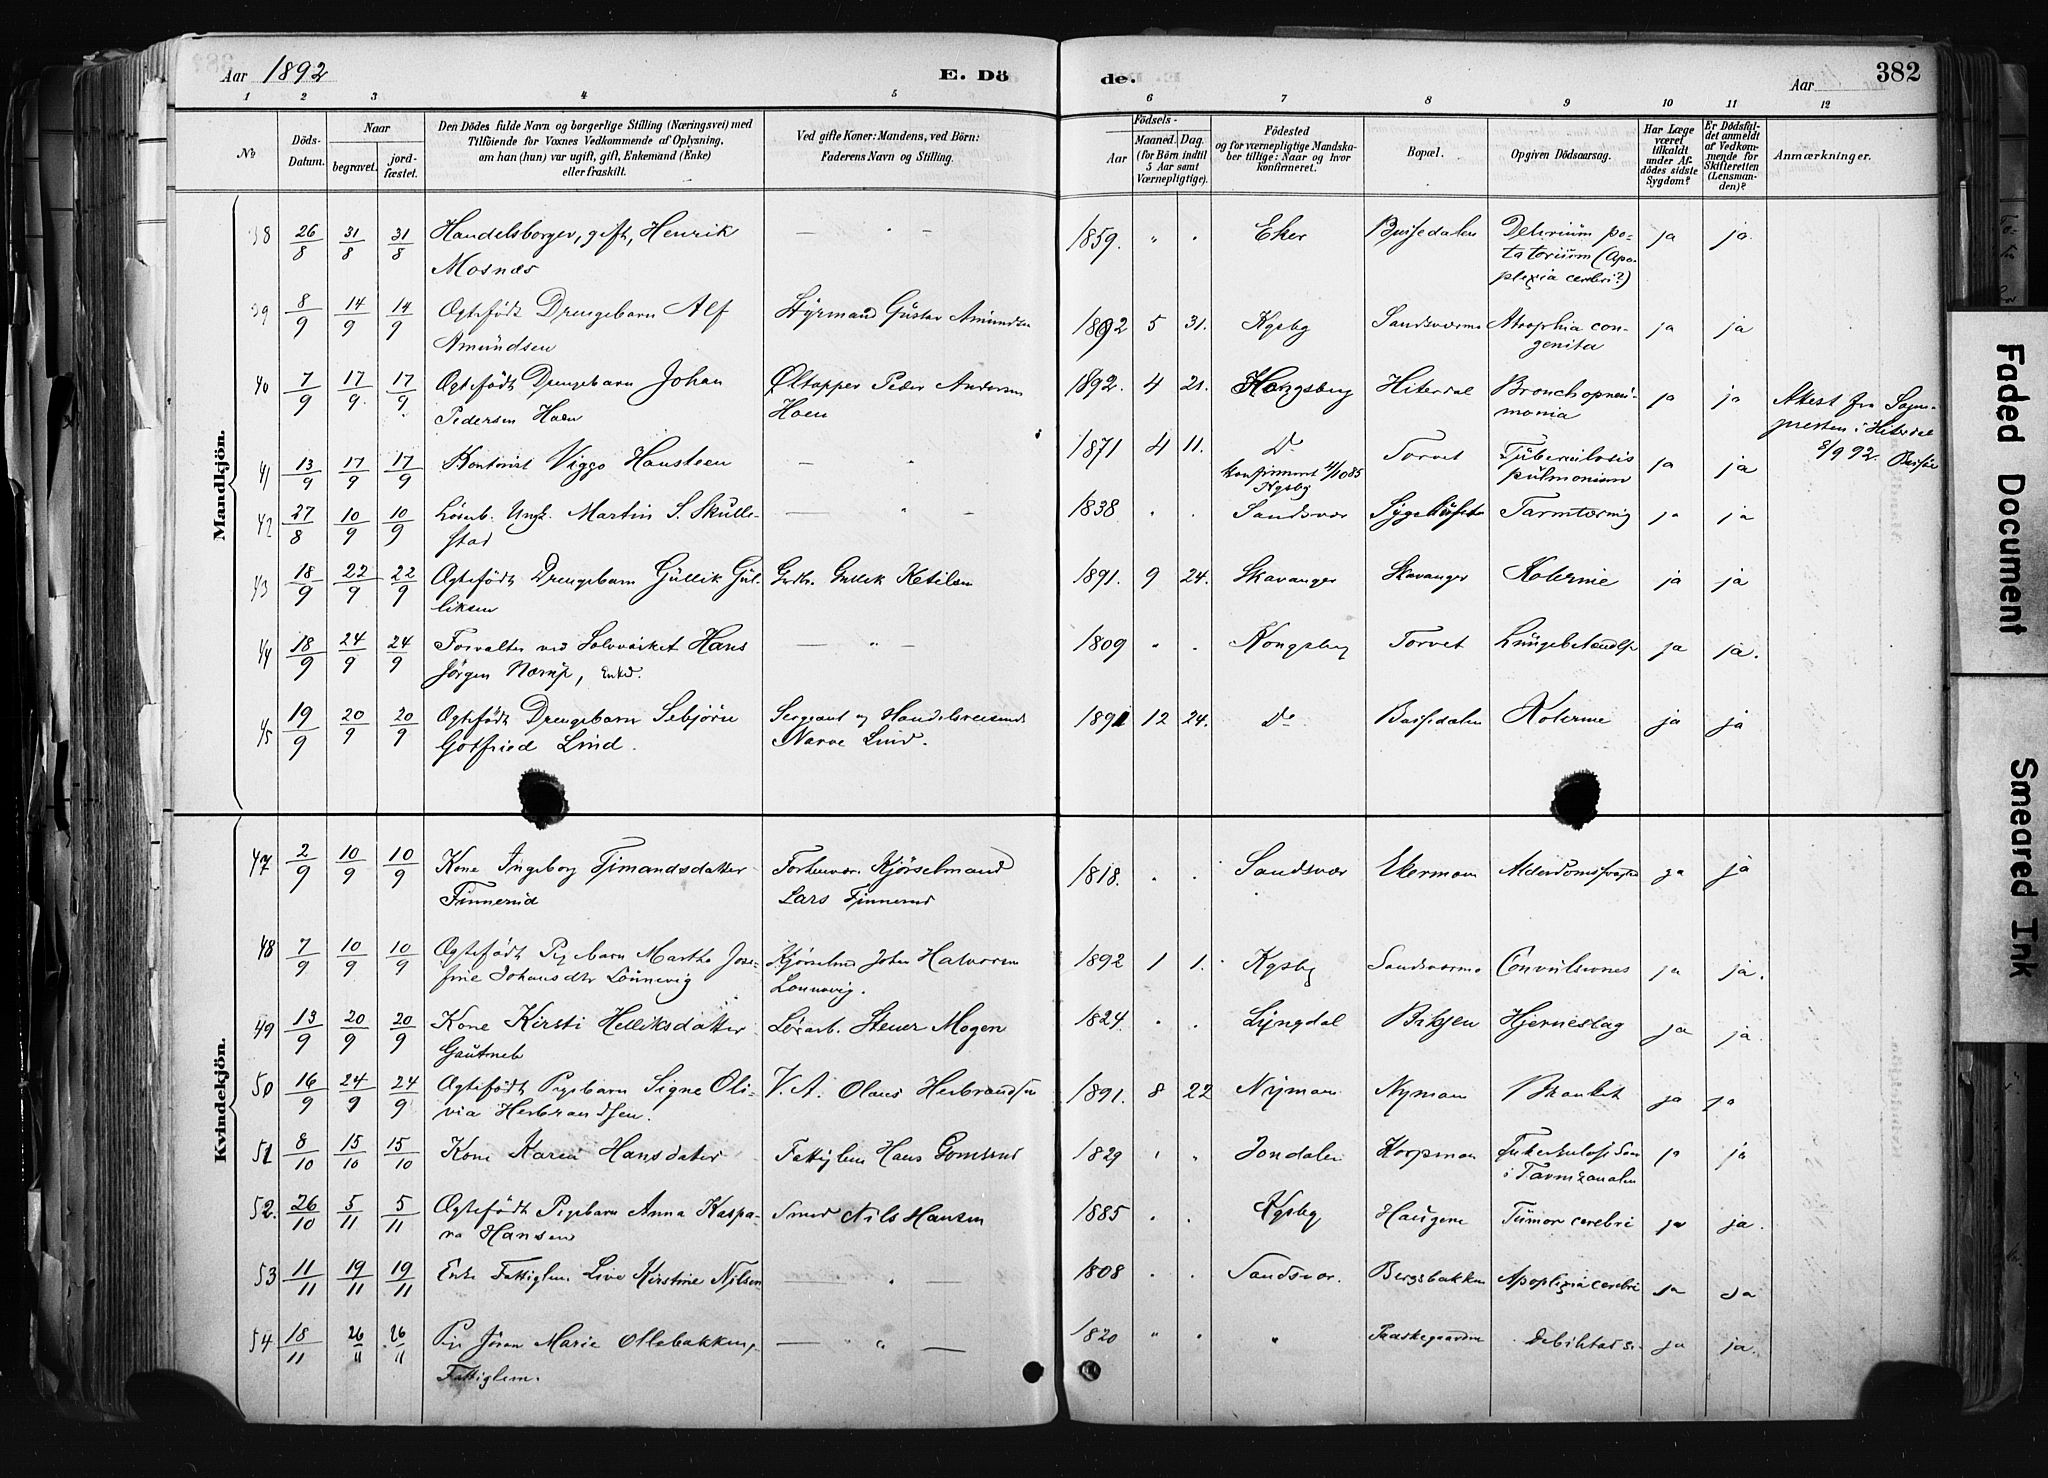 Aar 1892
E. Dö
de.
Aar
382
1 2 3 4 5 6 7 8 9 10 11 12
No
Döds-Datum.
Naar
begravet.
jord-fæstet.
Den Dödes fulde Navn og borgerlige Stilling (Næringsvei) med
Tilföiende for Voxnes Vedkommende af Oplysning,
om han (hun) var ugift, gift, Enkemand (Enke)
eller fraskilt.
Ved gifte Koner: Mandens, ved Börn:
Faderens Navn og Stilling.
Födsels-
Aar
Maaned. Dag.
(for Börn indtil
5 Aar samt
Værnepligtige).
Födested
og for værnepligtige Mandska-
ber tillige: Naar og hvor
konfirmeret.
Bopæl.
Opgiven Dödsaarsag.
Har Læge
været
tilkaldt
under Af-
dödes sidste
Sygdom?
Er Dödsfal-
det anmeldt
af Vedkom-
mende for
Skifteretten
(Lensman-
den)?
Anmærkninger.
Mandkjön.
38 26/8 31/8 31/8 Handelsborger, gift, Henrik — " — 1859. " " Eker Bussedalen Delirium po- ja ja
Mosnæs tatorium (Apo-
plexia cerebri?)
39 8/9 14/9 14/9 Ogtefödt Drengebarn Alf Styrmand Gustav Amundsen 1892 5 31. Kgsbg Sandsværmo Atrophia con- ja ja
Amundsen genita
40 7/9 17/9 17/9 Ogtefödt Drengebarn Johan Øltapper Peder Andersen 1892. 4 21. Kongsberg Hiterdal Bronchopneu- ja ja Attest fra Sogne-
Pedersen Hoen Hoen monia presten i Hiterdal
8/9 92.
41 13/9 17/9 17/9 Kontorist Viggo Hansteen — " 1871 4 11. Do Torvet Tuberculosis ja ja
konfirmeret 4/10 85 pulmonum
Kgsbg
42 27/8 10/9 10/9 Löserb. Ungk. Martin S. Skulle- — " — 1838 " " Sandsvær Sygehuset Tarmtæring ja ja
stad
43 18/9 22/9 22/9 Ogtefödt Drengebarn Gullik Gul- Grdbr. Gullik Ketilsen 1891. 9 24. Skavanger Skavanger Kolerine ja ja
liksen
44 18/9 24/9 24/9 Forvalter ved Sølvværket Hans — " — 1809 " " Kongsberg Torvet Lungebetændelse ja ja.
Jörgen Narup, Enkd.
45 19/9 20/9 20/9 Ogtefödt Drengebarn Sebjørn Sergeant og Handelsreisende 1891 12 24. Do Bussedalen Kolerine ja ja
Gotfried Lind. Narve Lind.
Kvindekjön.
47 2/9 10/9 10/9 Kone Ingeborg Timandsdatter Forhenvær. Kjörselmand 1818. " " Sandsvær Ekermoen Alderdomssvaghed ja ja
Finnerud Lars Finnerud
48 7/9 10/9 10/9 Ogtefödt Pigebarn Marthe Jose- Kjörselmd John Halvorsen 1892 1 1. Kgsbg Sandsværmo Convulsiones ja ja.
fine Johansdtr Lönnevig Lönnevig.
49 13/9 20/9 20/9 Kone Kirsti Helliksdatter Lösarb. Stener Mogen 1824. " " Lyngdal Bikjen Hjerneslag ja ja.
Gautneb
50 16/9 24/9 24/9 Ogtefödt Pigebarn Signe Oli- V. A. Olaus Herbrandsen 1891. 8 22 Nymoen Nymoen ja ja
via Herbrandsen.
51 8/10 15/10 15/10 Kone Karen Hansdatter Fattiglem Hans Gomsrud 1829 " " Jondalen Korpmoen ja ja
i Tarmkanalen
52. 26/10 5/11 5/11 Ogtefödt Pigebarn Anna Kaspa- Smed Nils Hansen 1885 " " Kgsbg Haugene Tumor cerebri ja ja.
ra Hansen
53 11/11 19/11 19/11 Enke Fattiglem Live Kirstine Nilsen — " — 1808 " " Sandsvær. Bergsbakken Apoplexia cerebri ja ja
54 18/11 26/11 26/11 Pige Jöran Marie Ollebakken, — " " — 1820 " " " Præstegaarden Debilitas s. ja ja.
Fattiglem.
Faded Document
Smeared Ink